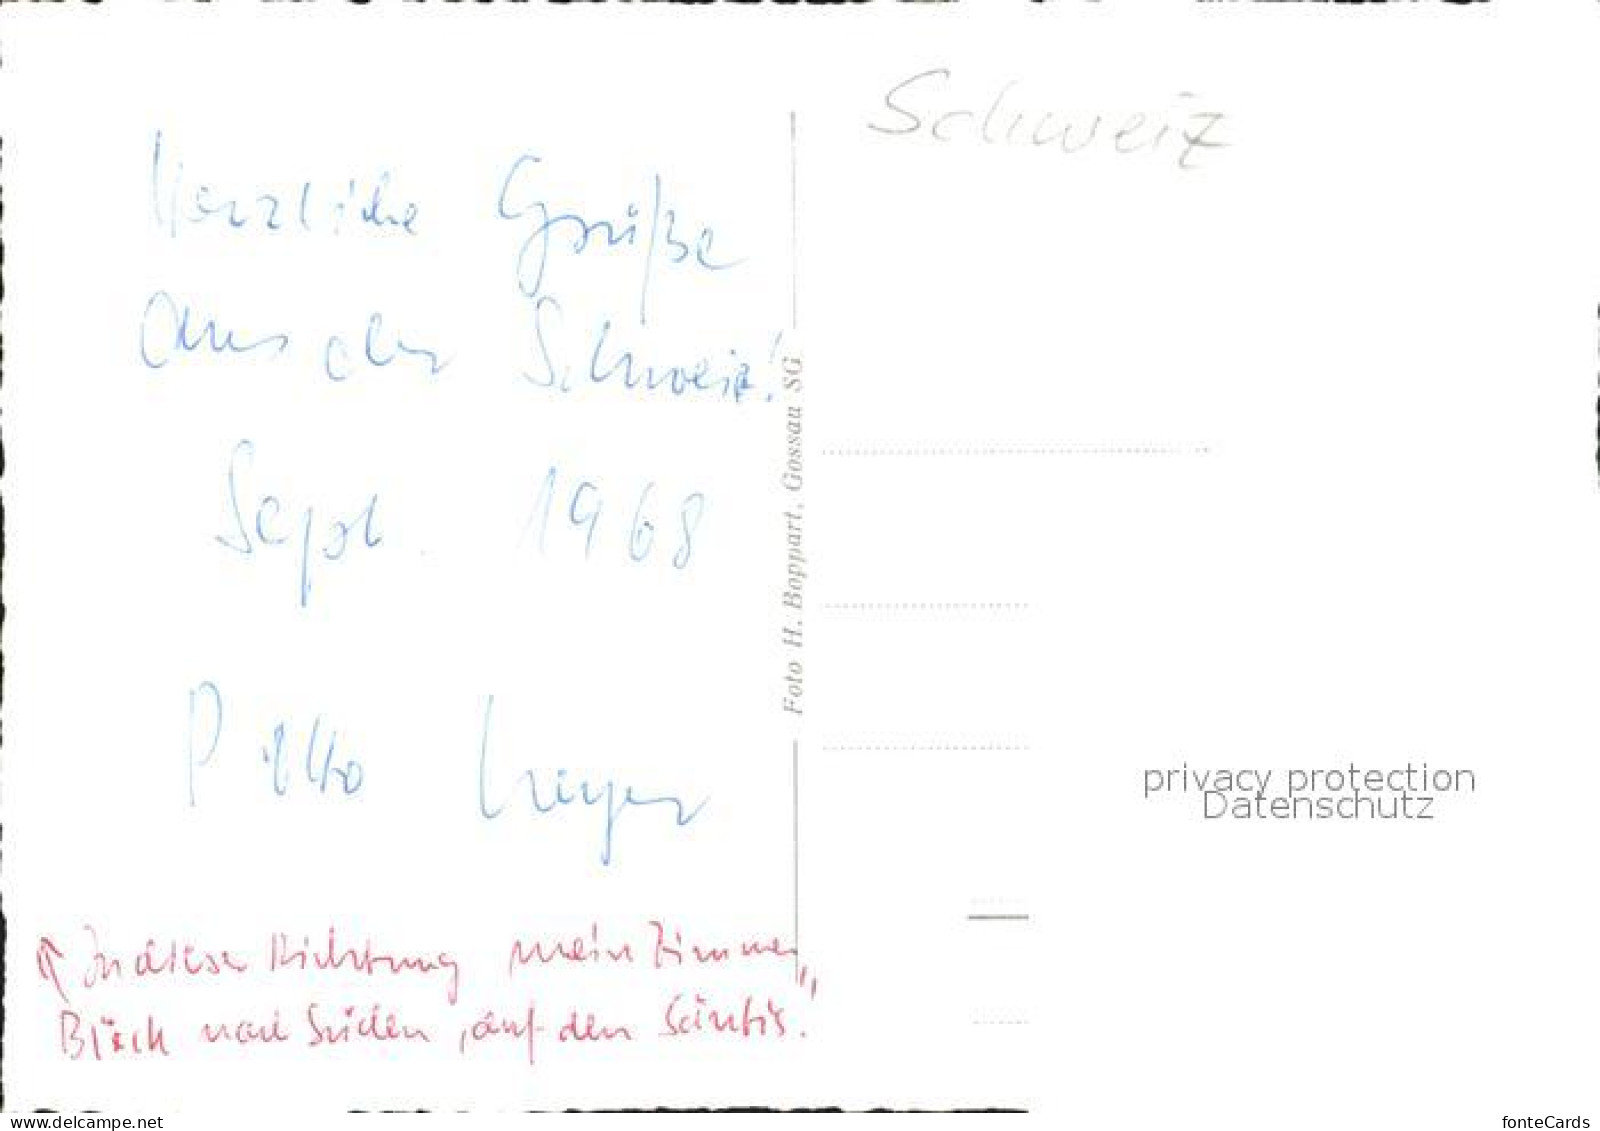 Herzliche Grüße
aus der Schweiz!
Sept. 1968
P. Otto
In dieser Richtung mein Zimmer,
Blick nach Süden, auf den Säntis.
Foto H. Boppart, Gossau SG
Schweiz
privacy protection
Datenschutz
www.delcampe.net
fonteCards